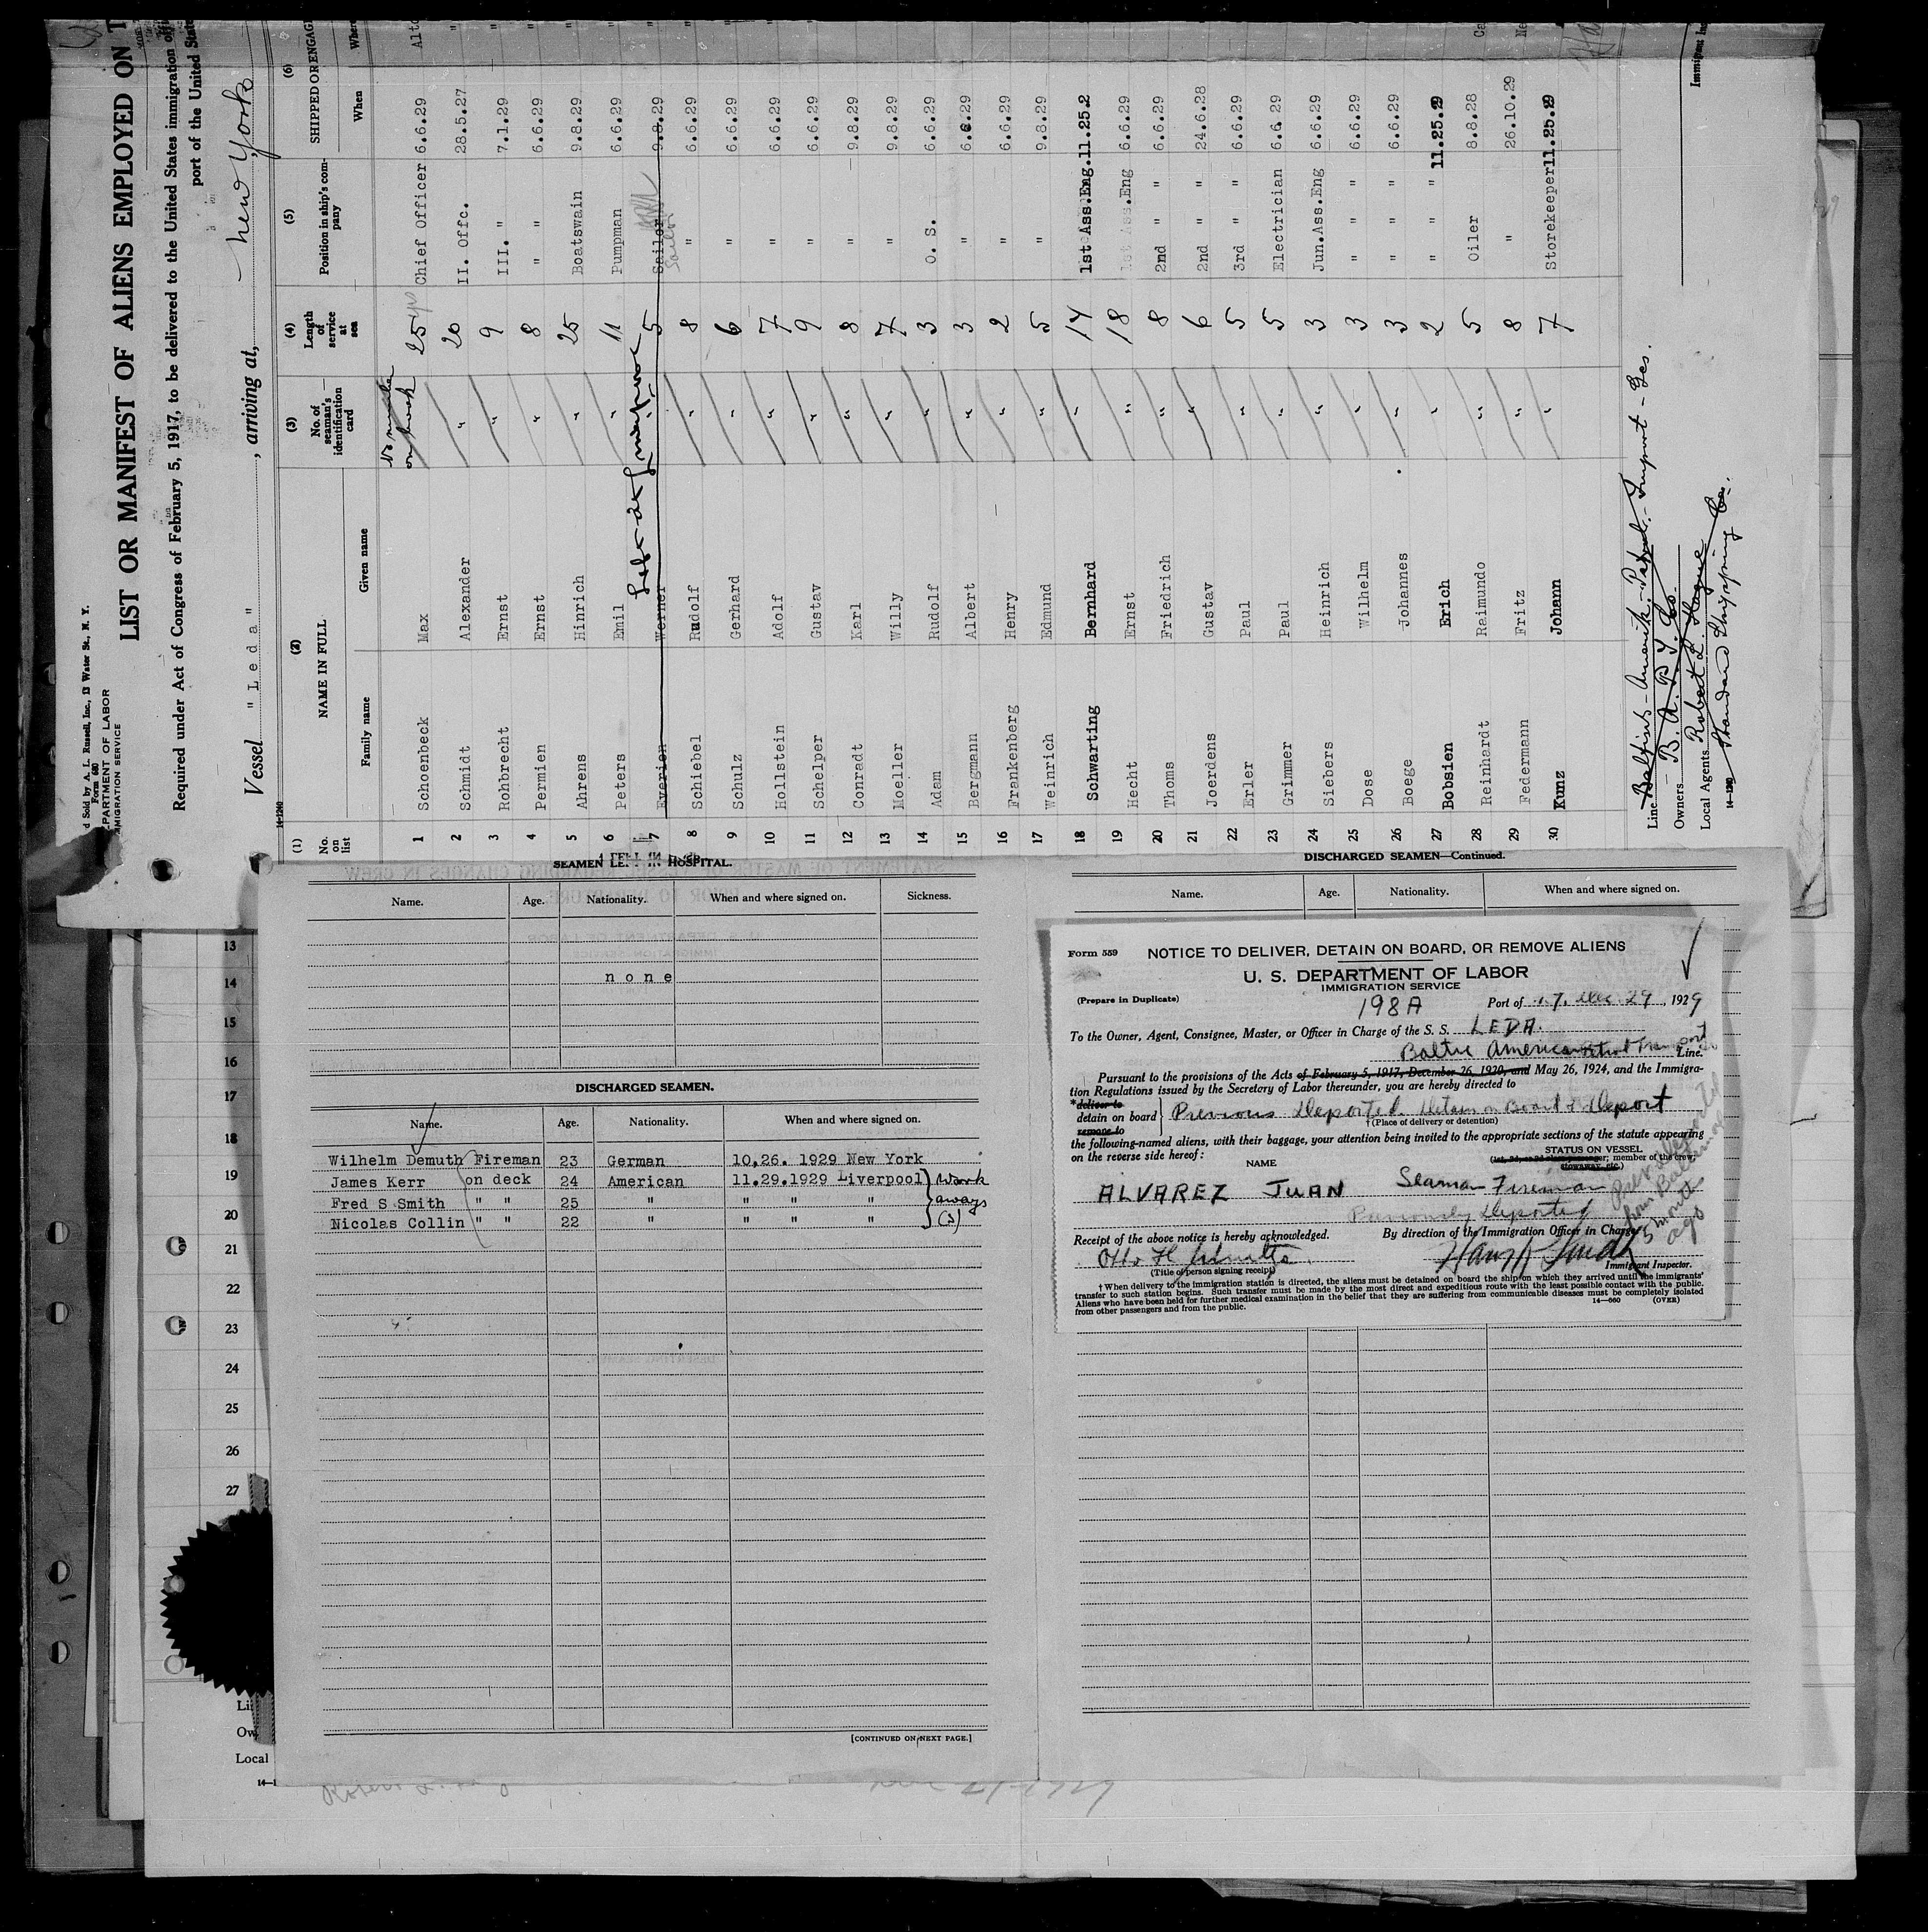 d Sold by A. L. Russell, Inc., 13 Water St., N. Y.
Form 680
PARTMENT OF LABOR
MIGRATION SERVICE
LIST OR MANIFEST OF ALIENS EMPLOYED ON T
Required under Act of Congress of February 5, 1917, to be delivered to the United States immigration
port of the United Stat
Vessel "Leda" , arriving at, New York
14-1240
(1) (2) (3) (4) (5) (6)
No. on list NAME IN FULL No. of seaman's identification card Length of service at sea Position in ship's company SHIPPED OR ENGAG
Family name Given name When Wher
1 Schoenbeck Max No number on book 25 yrs Chief Officer 6.6.29 Alto
2 Schmidt Alexander " 20 II. Offc. 28.5.27 "
3 Rohbrecht Ernst " 9 III. " 7.1.29 "
4 Permien Ernst " 8 " " 6.6.29 "
5 Ahrens Hinrich " 25 Boatswain 9.8.29 "
6 Peters Emil " 11 Pumpman 6.6.29 "
7 Everien Werner 5 Sailor 9.8.29 "
8 Schiebel Rudolf " 8 " 6.6.29 "
9 Schulz Gerhard " 6 " 6.6.29 "
10 Hollstein Adolf " 7 " 6.6.29 "
11 Schelper Gustav " 9 " 6.6.29 "
12 Conradt Karl " 8 " 9.8.29 "
13 Moeller Willy " 7 " 9.8.29 "
14 Adam Rudolf " 3 O. S. 6.6.29 "
15 Bergmann Albert " 3 " 6.6.29 "
16 Frankenberg Henry " 2 " 6.6.29 "
17 Weinrich Edmund " 5 " 9.8.29 "
18 Schwarting Bernhard " 14 1st Ass.Eng. 11.25.2
19 Hecht Ernst " 18 1st Ass.Eng 6.6.29 "
20 Thoms Friedrich " 8 2nd " " 6.6.29 "
21 Joerdens Gustav " 6 2nd " " 24.6.28 "
22 Erler Paul " 5 3rd " " 6.6.29 "
23 Grimmer Paul " 5 Electrician 6.6.29 "
24 Siebers Heinrich " 3 Jun.Ass.Eng 6.6.29 "
25 Dose Wilhelm " 3 " " 6.6.29 "
26 Boege Johannes " 3 " " 6.6.29 "
27 Bobsien Erich " 2 " " 11.25.29
28 Reinhardt Raimundo " 5 Oiler 8.8.28 Ca
29 Federmann Fritz " 8 " 26.10.29 Ne
30 Kunz Johann " 7 Storekeeper 11.25.29
Line Baltisch-Amerik. Petrol. Import-Ges.
Owners B. A. P. I. Co.
Local Agents Robert L. Hague
Standard Shipping Co.
14-1240
Immigrant In
SEAMEN LEFT IN HOSPITAL.
Name. Age. Nationality. When and where signed on. Sickness.
none
DISCHARGED SEAMEN.
Name. Age. Nationality. When and where signed on.
Wilhelm Demuth Fireman 23 German 10.26. 1929 New York
James Kerr on deck 24 American 11.29.1929 Liverpool } Work
Fred S Smith " " 25 " " " " aways
Nicolas Collin " " 22 " " " " (3)
[CONTINUED ON NEXT PAGE.]
DISCHARGED SEAMEN—Continued.
Name. Age. Nationality. When and where signed on.
Form 559 NOTICE TO DELIVER, DETAIN ON BOARD, OR REMOVE ALIENS
U. S. DEPARTMENT OF LABOR
IMMIGRATION SERVICE
(Prepare in Duplicate) 198A Port of Dec 29, 1929
To the Owner, Agent, Consignee, Master, or Officer in Charge of the S. S. LEDA.
Baltic American Line.
Pursuant to the provisions of the Acts of February 5, 1917, December 26, 1920, and May 26, 1924, and the Immigra-
tion Regulations issued by the Secretary of Labor thereunder, you are hereby directed to
*deliver to
detain on board } Previous Deported. Detain on Board & Deport
remove to †(Place of delivery or detention)
the following-named aliens, with their baggage, your attention being invited to the appropriate sections of the statute appearing
on the reverse side hereof:
NAME STATUS ON VESSEL
member of the crew,
stowaway, etc.)
ALVAREZ JUAN Seaman Fireman
Previously Deported
from Baltimore
5 months
ago
Receipt of the above notice is hereby acknowledged. By direction of the Immigration Officer in Charge,
(Title of person signing receipt) Immigrant Inspector.
†When delivery to the immigration station is directed, the aliens must be detained on board the ship on which they arrived until the immigrants'
transfer to such station begins. Such transfer must be made by the most direct and expeditious route with the least possible contact with the public.
Aliens who have been held for further medical examination in the belief that they are suffering from communicable diseases must be completely isolated
from other passengers and from the public. 14—660 (OVER)
13
14
15
16
17
18
19
20
21
22
23
24
25
26
27
Li
Ow
Local
14—1